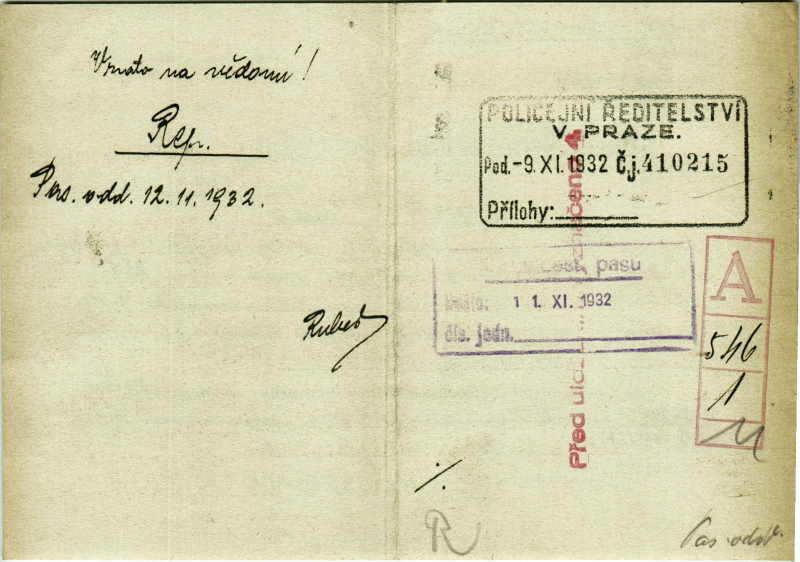 Vzato na vědomí!
Rep.
Pas. odd. 12. 11. 1932.
POLICEJNÍ ŘEDITELSTVÍ
V PRAZE.
Pod. -9. XI. 1932 Č.j. 410215
Přílohy:
pasu
11. XI. 1932
čís. jedn.
Před
A
546
1
R
Pas. odd.